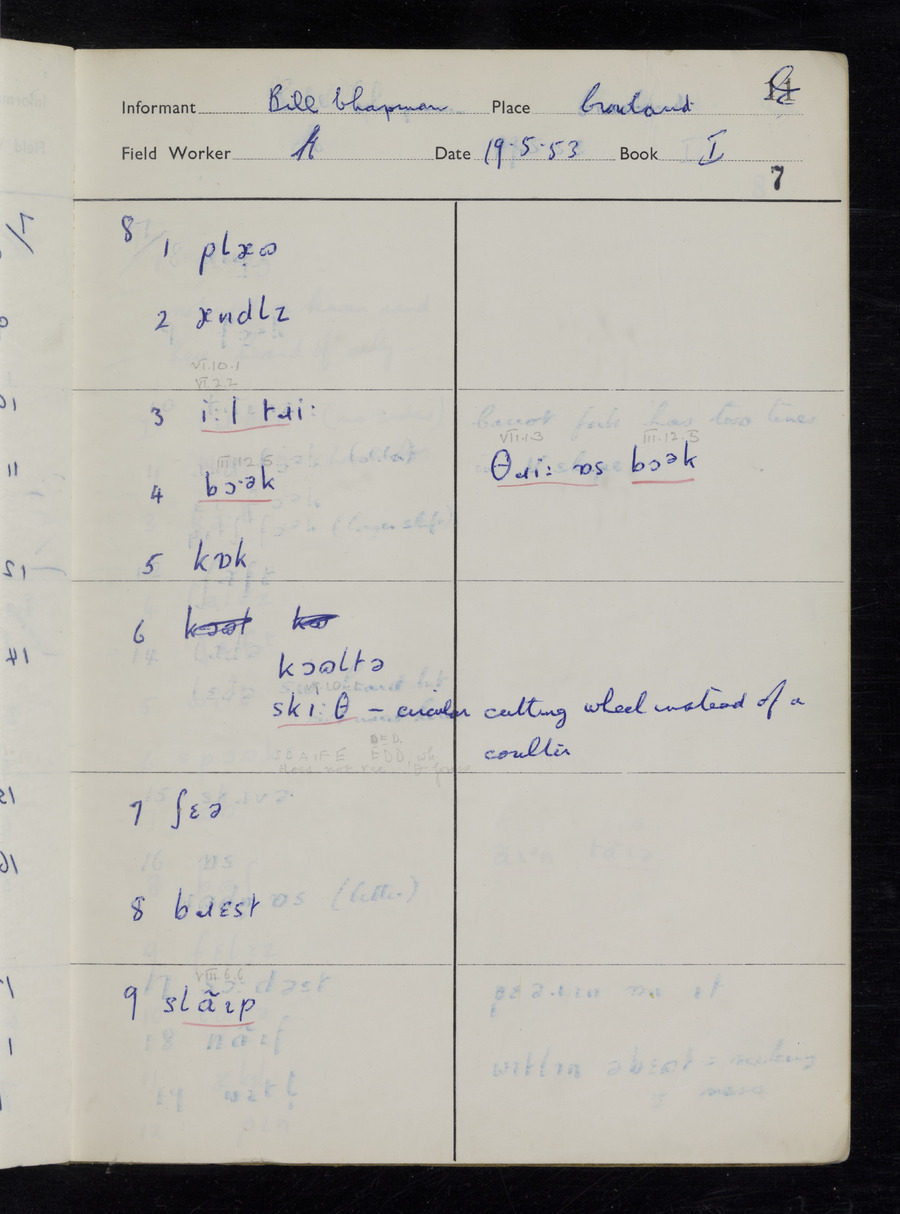 Informant Bill Chapman Place Crowland
Field Worker Date 19·5·53 Book I
7
8
1 plæɷ
2 ændlz
VI.10.1
VI.2.2
3 i:l tɹi:
VII.1.3 III.12.5
θɹi: ɒs bɔək
III.12.5
4 bɔ·ək
5 kɒk
6
kɔɷltə
ski:θ – circular cutting wheel instead of a
coulter
SCAIFE EDD, wh.
7 ʃɛə
8 bɹɛst
VIII.6.6
9 slãɪp